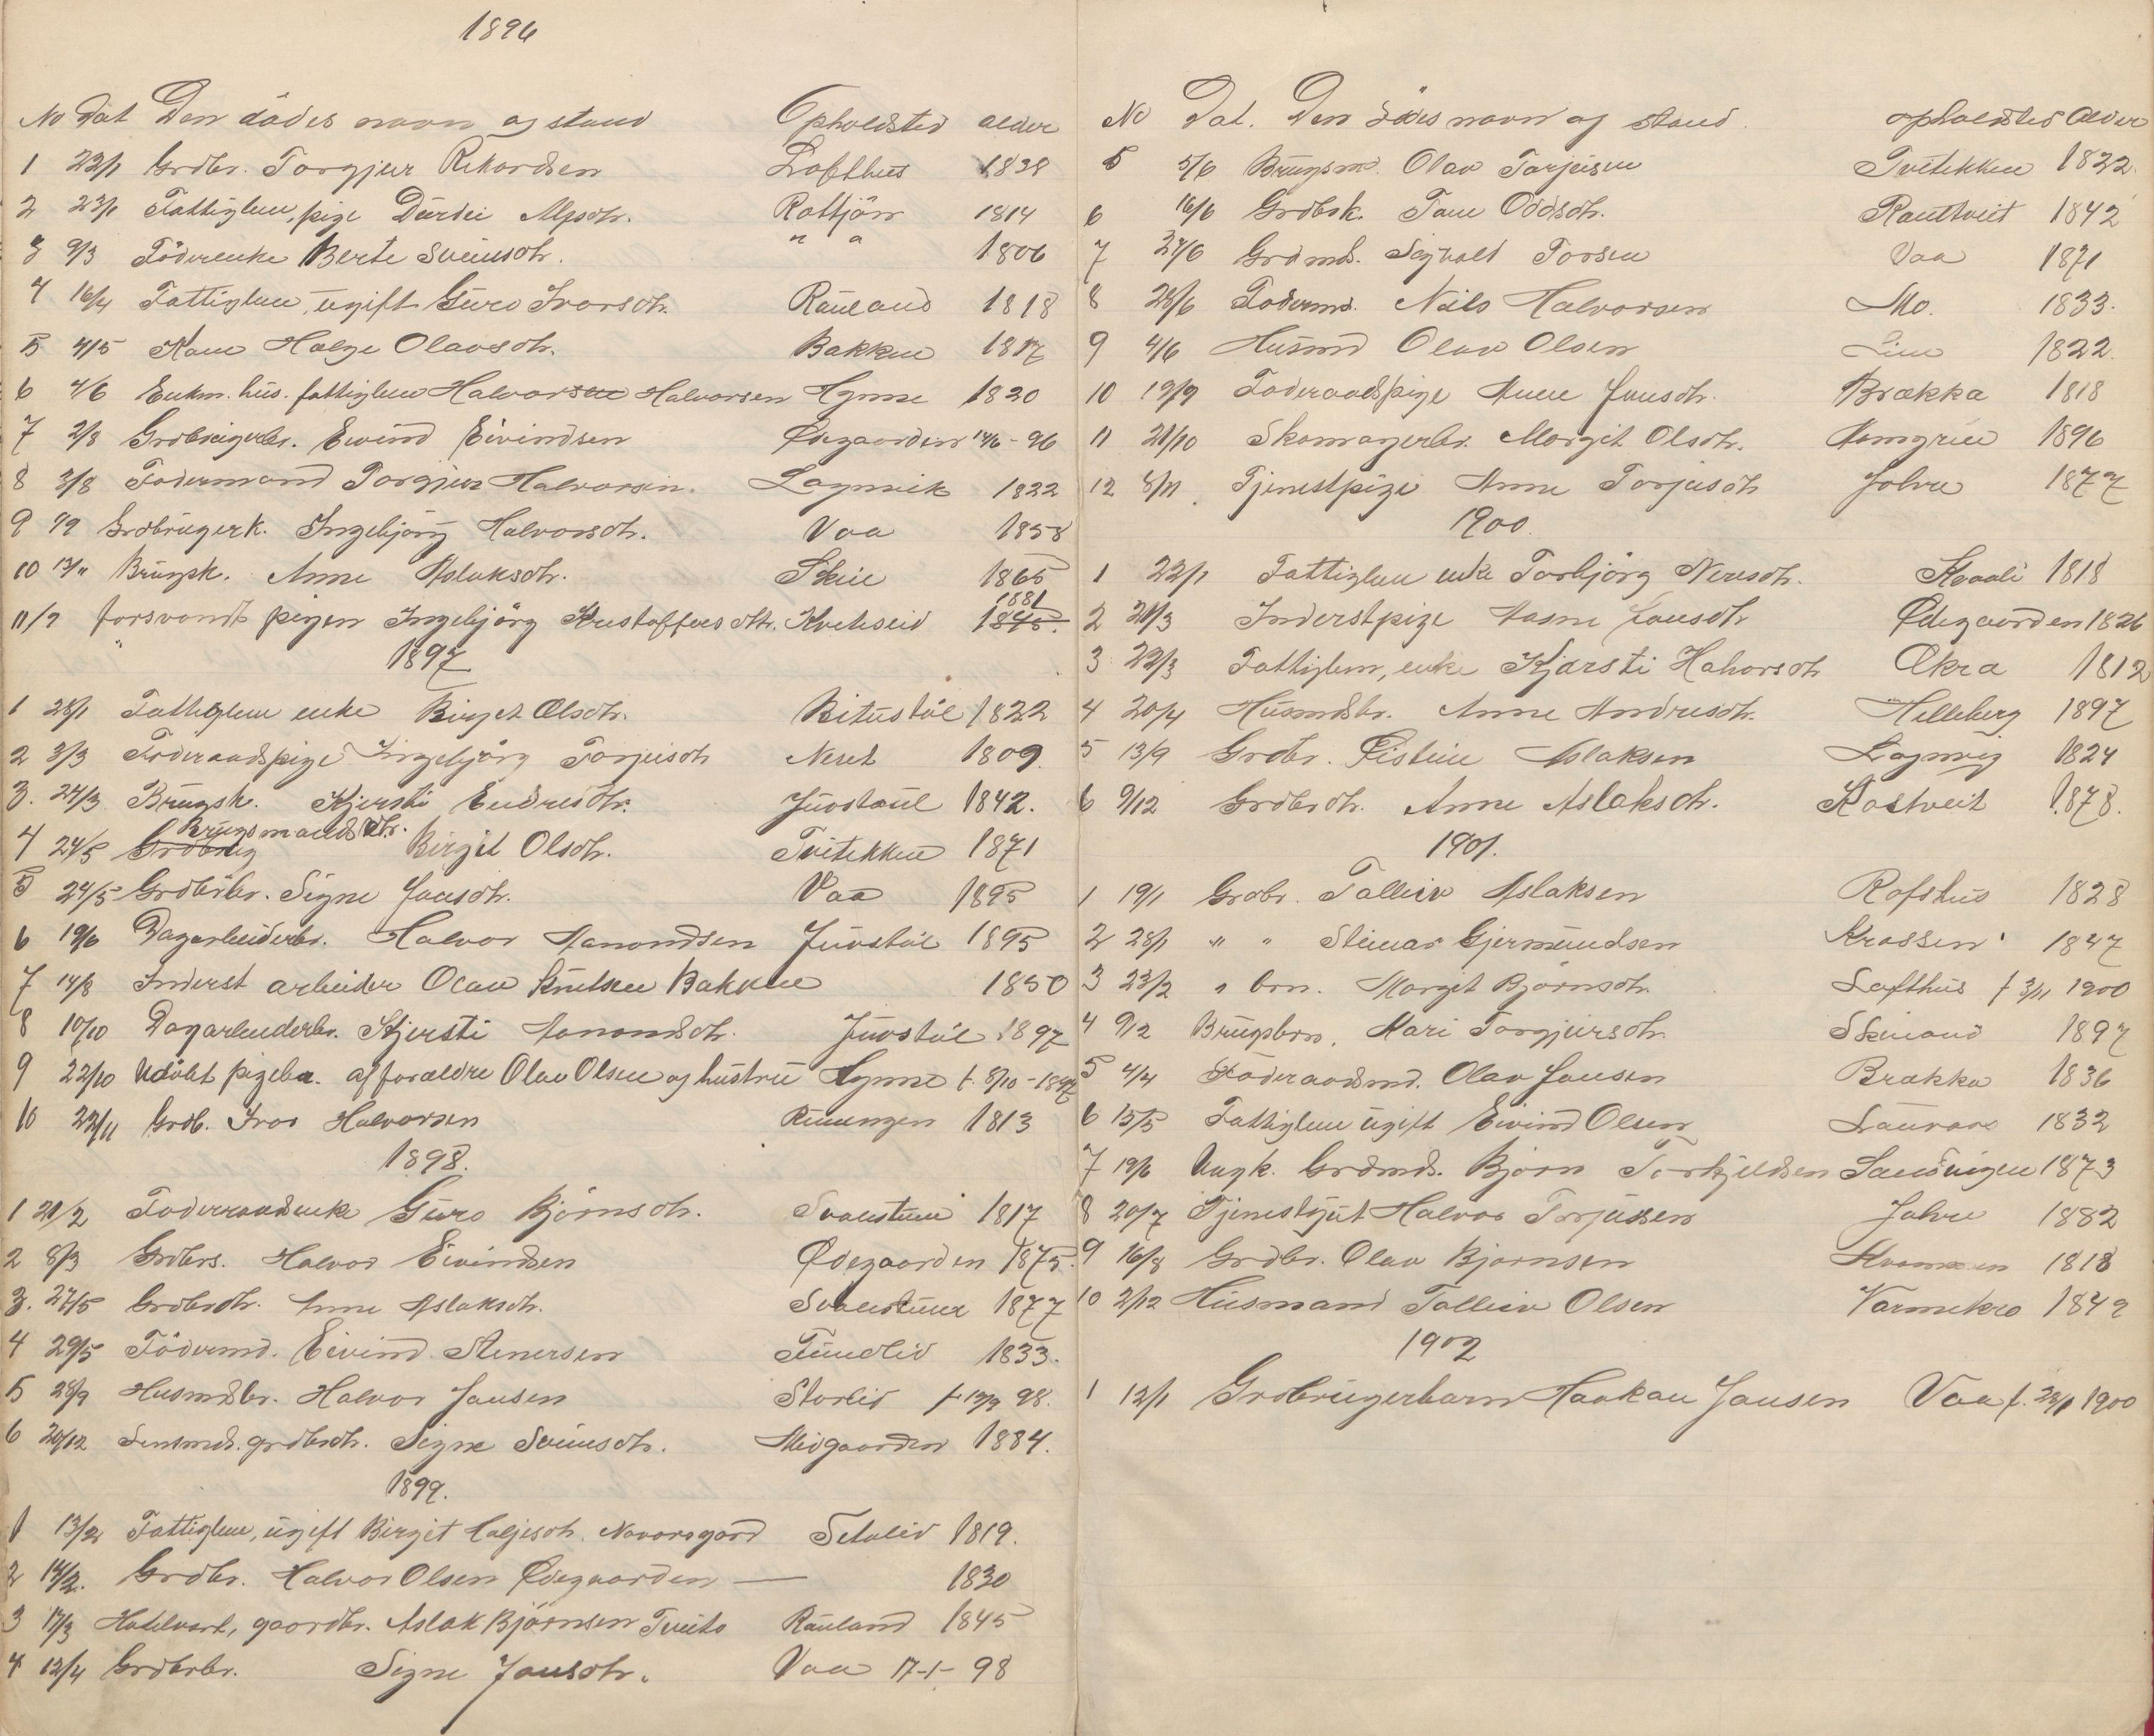 1896
No Dat Den dödes navn og stand Opholdsted alder
1 22/1 Grdbr. Torgjur Rikardsen Lofthus 1838
2 23/1 Fattiglem, pige Dürdei Alfsdtr. Rottjön 1814
3 9/3 Föderenke Berte Sveinsdtr. " " 1806
4 16/4 Fattiglem, ügift Güro Ivarsdtr. Raüland 1818
5 4/5 Kone Hæge Olavsdtr. Bakken 1817
6 4/6 Enkm. hüs. fattiglem Halvorsen Halvorsen Hynne 1820
7 2/8 Grdbrügerbr. Eivind Eivindsen Ødegaarden 14/6 - 96
8 3/8 Födermand Torgjus Halvorsen. Lognvik 1822
9 9/9 Grdbrügerk. Ingebjörg Halvorsdtr. Vaa 1858
10 13/" Brügsk. Anne Aslaksdtr. Skeie 1865
11/7 forsvandt pigen Ingebjörg Kristoffersdtr. Kviteseid 1881 1845.
1897
1 28/1 Fattiglem enke Birget Olsdtr. Bitüstöl 1822
2 3/3 Föderaadspige Ingebjörg Torjüsdtr Neset 1809.
3. 24/3 Brügsk. Kjersti Endresdtr. Jüvstöül 1842.
Brügsmandsdtr.
4 24/5 Grdbrüg Birgit Olsdtr. Tvitekken 1871
5 24/5 Grdbrbr. Signe Jansdtr. Vaa 1895
6 19/6 Dagarbeiderbr. Halvor Aanondsen Jüvstöl 1895
7 14/8 Inderst arbeider Olav Knütsen Bakken 1850
8 10/10 Dagarbeiderbr. Kjersti Aanondsdtr. Jüvstöl 1897
9 22/10 Udöbt pigeba. af forældre Olav Olsen og hüstrü Hynne f. 8/10 - 1897
10 23/11 Grdb. Ivar Halvorsen Rüüngen 1813
1898.
1 21/2 Föderaadsenke Güro Björnsdtr. Svalestuü 1817
2 8/3 Grdbrs. Halvor Eivindsen Ødegaarden 1875.
3. 27/5 Grdbrdtr. Anne Aslaksdtr. Svalestuü 1877
4 29/5 Födermd. Eivind Stenersen Fündlid 1833.
5 28/9 Husmdsbr. Halvor Jansen Storlid f 12/9 98.
6 20/12 Lensmd. grdbrdtr. Signe Sveinsdtr. Midgaarden 1884.
1899.
1 13/2 Fattiglem, ügift Birgit Haljesdtr. Navarsgard Setalid 1819.
2 14/2. Grdbr. Halvor Olsen Ødegaarden — 1830
3 17/3 Hotelvert, gaardbr. Aslak Björnsen Tveito Raüland 1845
4 12/4 Grdbrbr. Signe Jansdtr. Vaa 17-1- 98
No Dat. Den Dödes navn og stand. opholdsted Alder
5 5/6 Brügsmd. Olav Torjüsen Tvitekken 1822.
6 16/6 Grdbrk. Tone Oddsdtr. Rautveit 1842
7 27/6 Grdmd. Sigvald Torsen Vaa 1871
8 28/6 Födermd. Nils Halvorsen Mo. 1833.
9 4/6 Hüsmd Olav Olsen Lien 1822.
10 19/9 Föderaadspige Anne Jansdtr. Brækka 1818
11 21/10 Skomagerbr. Margit Olsdtr. 1896
12 8/11. Tjenestpige Anne Torjüsdtr Jolvre 1877
1900.
1 22/1 Fattiglem enke Torbjörg Neresdtr. Kvaali 1818
2 21/3 Inderstpige Aasne Jansdtr Ødegaarden 1826
3 22/3 Fattiglem, enke Kjersti Halvorsdtr Økra 1812
4 20/4 Hüsmdsbr. Anne Andresdtr. Helleberg 1897
5 13/9 Grdbr. Øistein Aslaksen Lognvig 1824
6 9/12 Grdbrdtr. Anne Aslaksdtr. Kostveit 1878.
1901.
1 19/1 Grdbr. Talleiv Aslaksen Rofshüs 1828
2 28/1 " " Steinar Gjermündsen Krossen 1847
3 23/2 " brn. Margit Björnsdtr. Lofthüs f 3/11 1900
4 9/2 Brügsbrn. Kari Torgjürsdtr. Skinand 1897
5 4/4 Föderaadsmd. Olav Jansen Brækka 1836
6 15/5 Fattiglem ügift Eivind Olsen Laüraas 1832
7 19/6 Ungk. Grdmds. Bjørn Torkjeldsen Sandvigen 1873
8 20/7 Tjenestgüt Halvor Torjüssen Jolvre 1882
9 16/8 Grdbr. Olav Bjørnsen 1818
10 2/12 Hüsmand Talleiv Olsen Varmekro 1842
1902
1 12/1 Grdbrügerbarn Haakan Jansen Vaa f. 23/1 1900